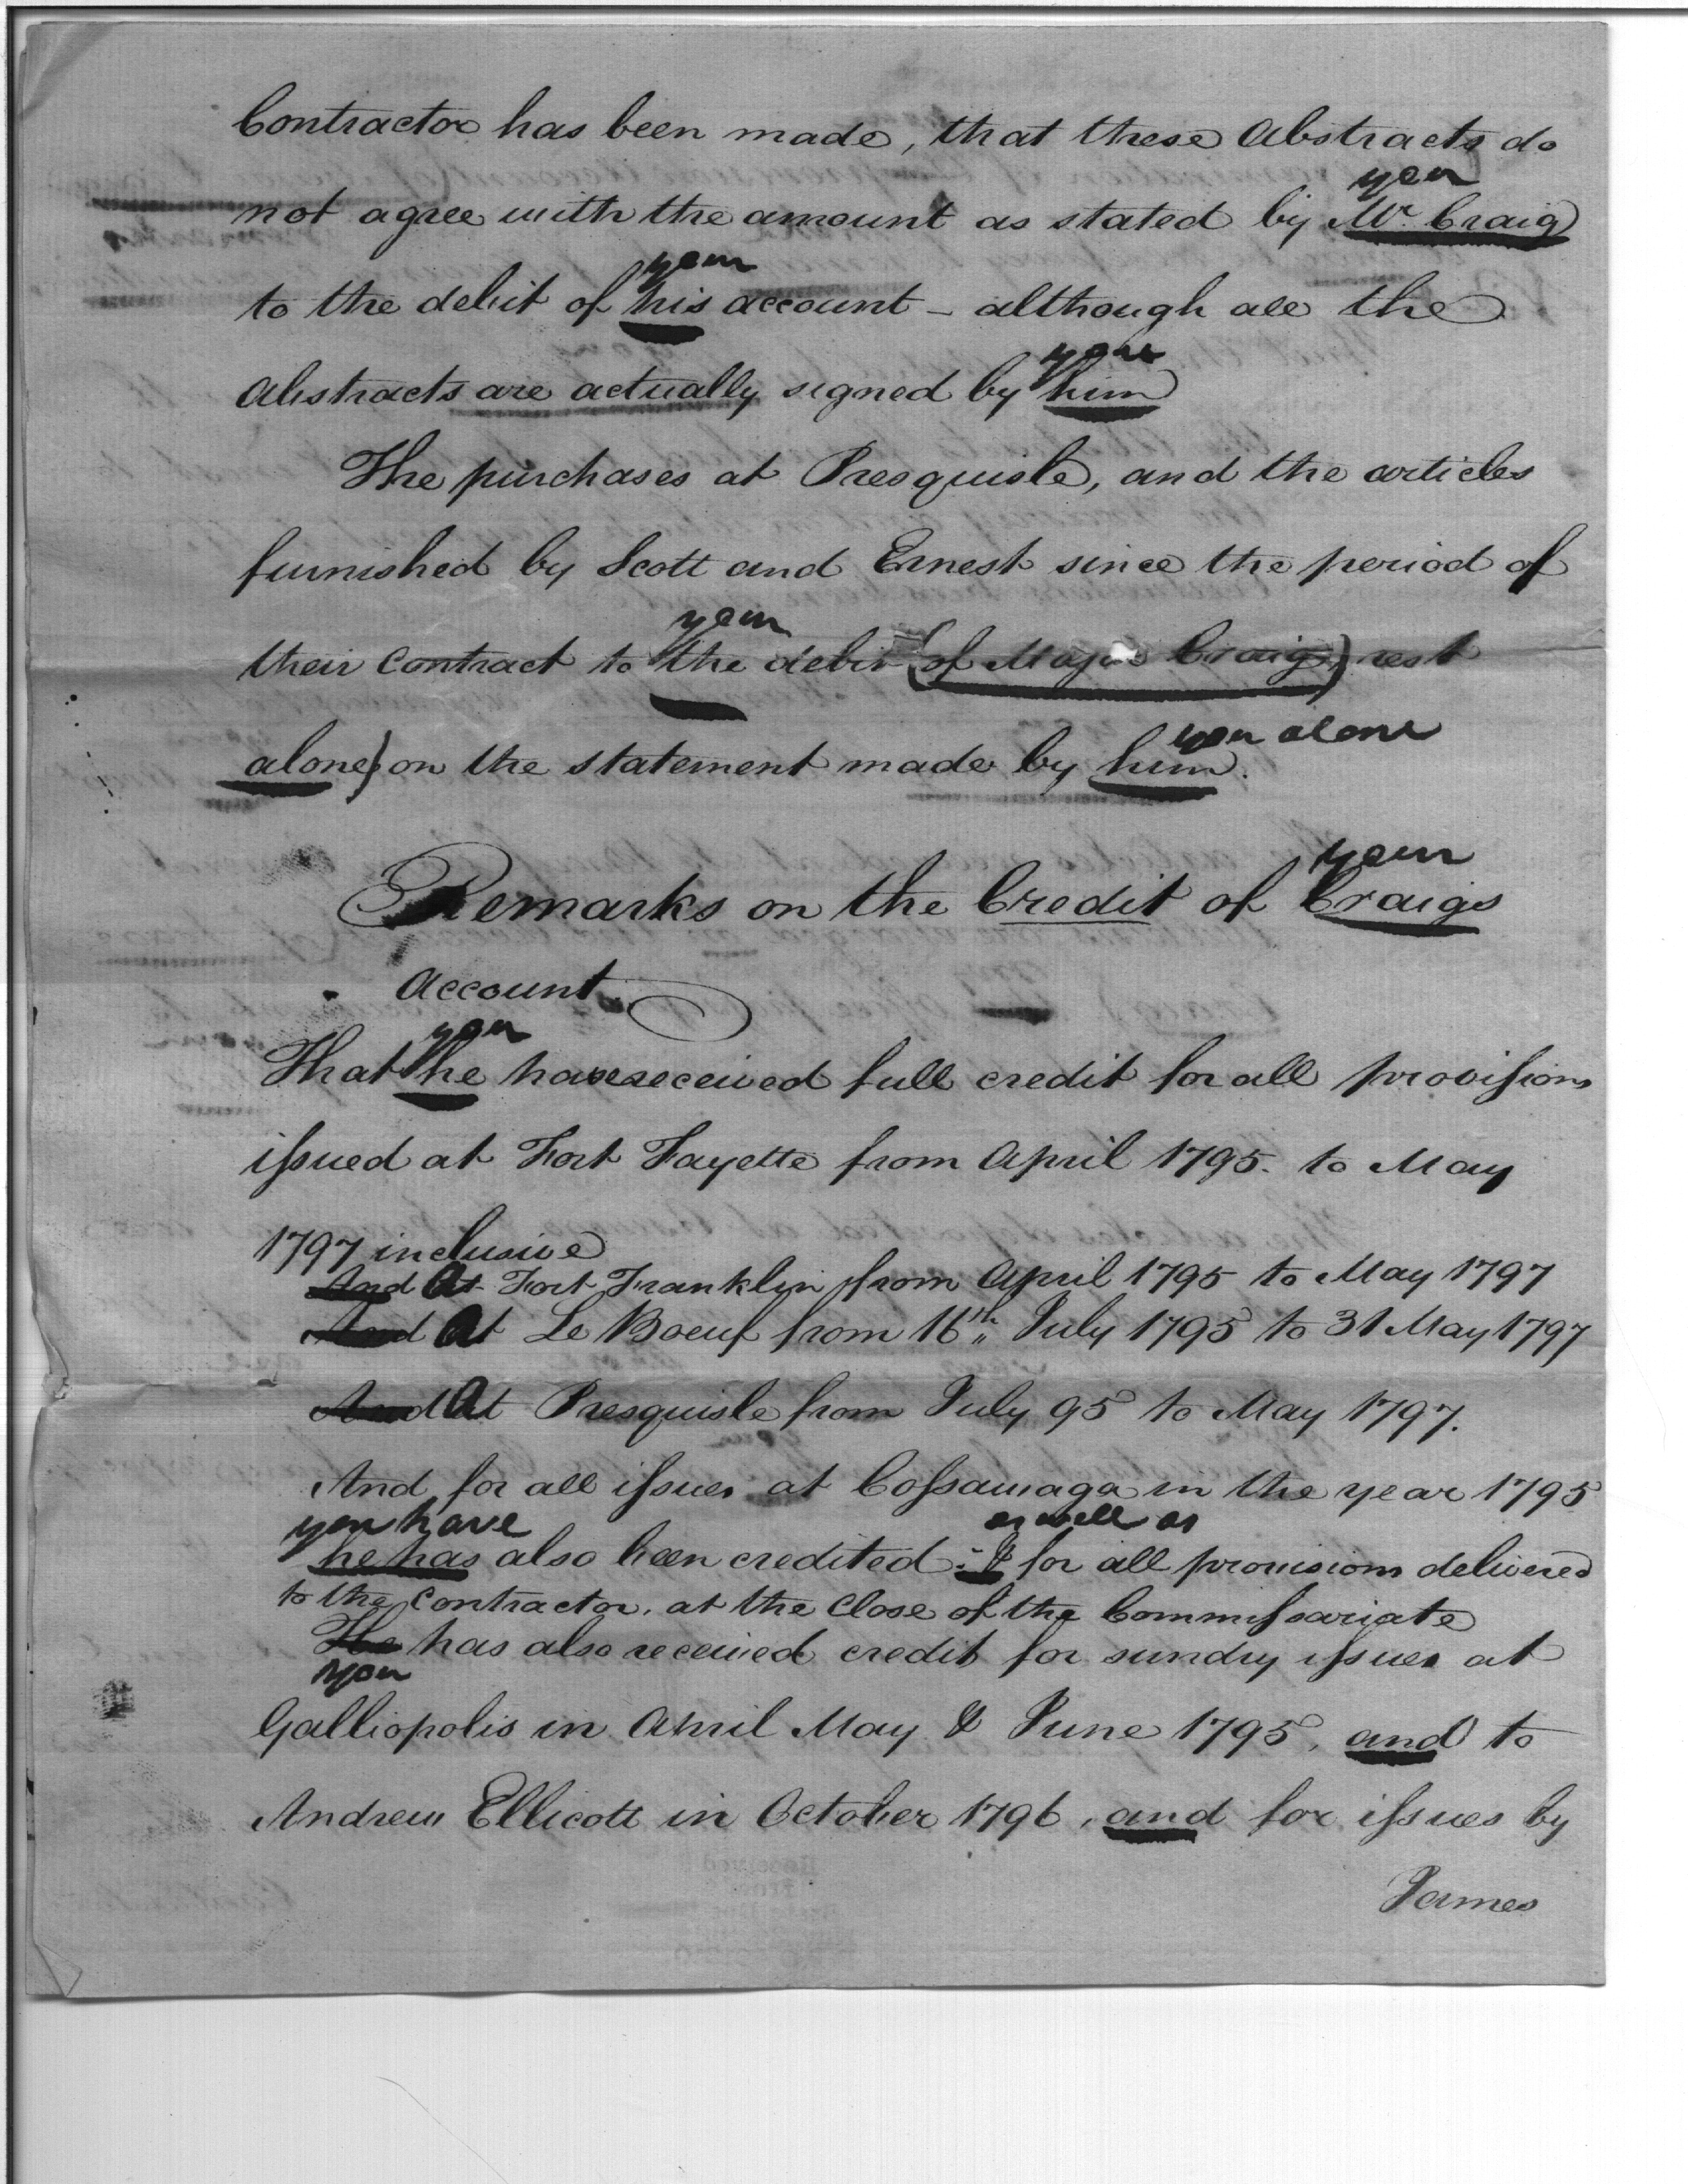 Contractor has been made, that these Abstracts do
you
not agree with the amount as stated by Mr. Craig
your
to the debit of his account - although all the
you
Abstracts are actually signed by him
The purchases at Presquisle, and the articles
furnished by Scott and Ernest since the period of
your
their Contract to the debit (of Major Craig) rest
you alone
alone) on the statement made by him.
your
Remarks on the Credit of Craigs
Account.
you
That he have received full credit for all provisions
issued at Fort Fayette from April 1795. to May
1797 inclusive
And At Fort Franklin from April 1795 to May 1797
And At Le Boeuf from 16th July 1795 to 31 May 1797
And At Presquisle from July 95 to May 1797.
And for all issues at Cossawaga in the year 1795
you have as well as
he has also been credited. & for all provisions delivered
to the Contractor, at the Close of the Commissariate
He has also received credit for sundry issues at
you
Galliopolis in April May & June 1795, and to
Andrew Ellicott in October 1796, and for issues by
James